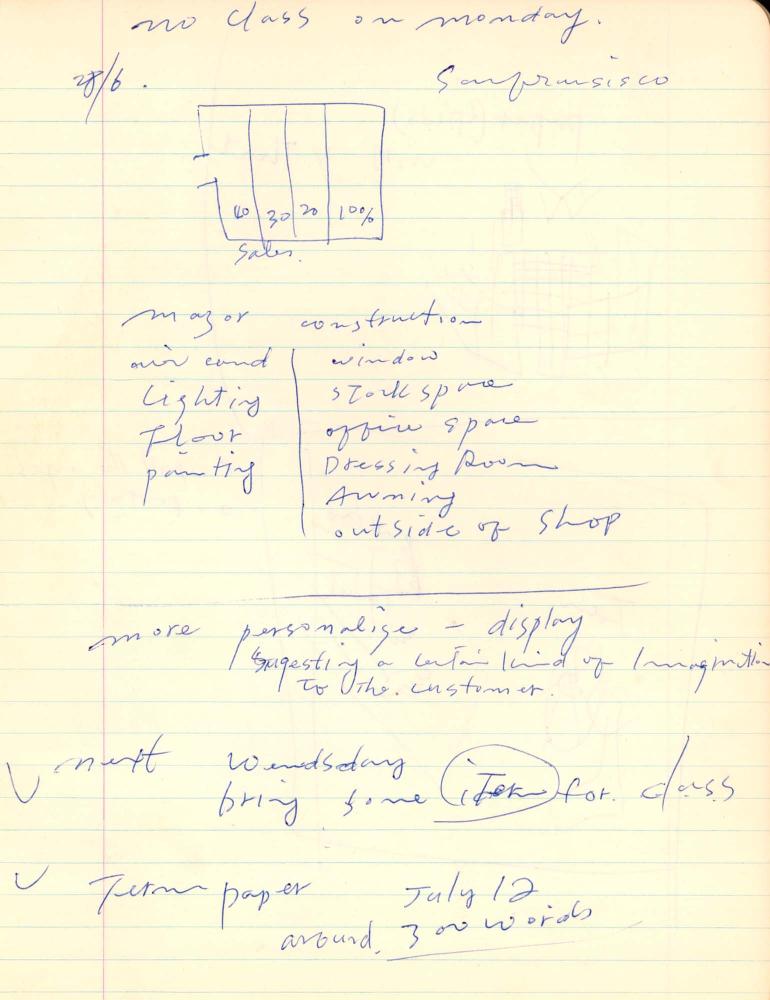 no class on monday.
28/6.
Sanfransisco
40 30 20 100%
Sales.
major construction
air cond window
Lighting stock space
Floor office space
painting Dressing Room
Awning
outside of Shop
more personalise - display
sugesting a certain kind of Imagination
To The. customer.
next wendsday
bring some item for. class
Term paper July 12
around. 300 words